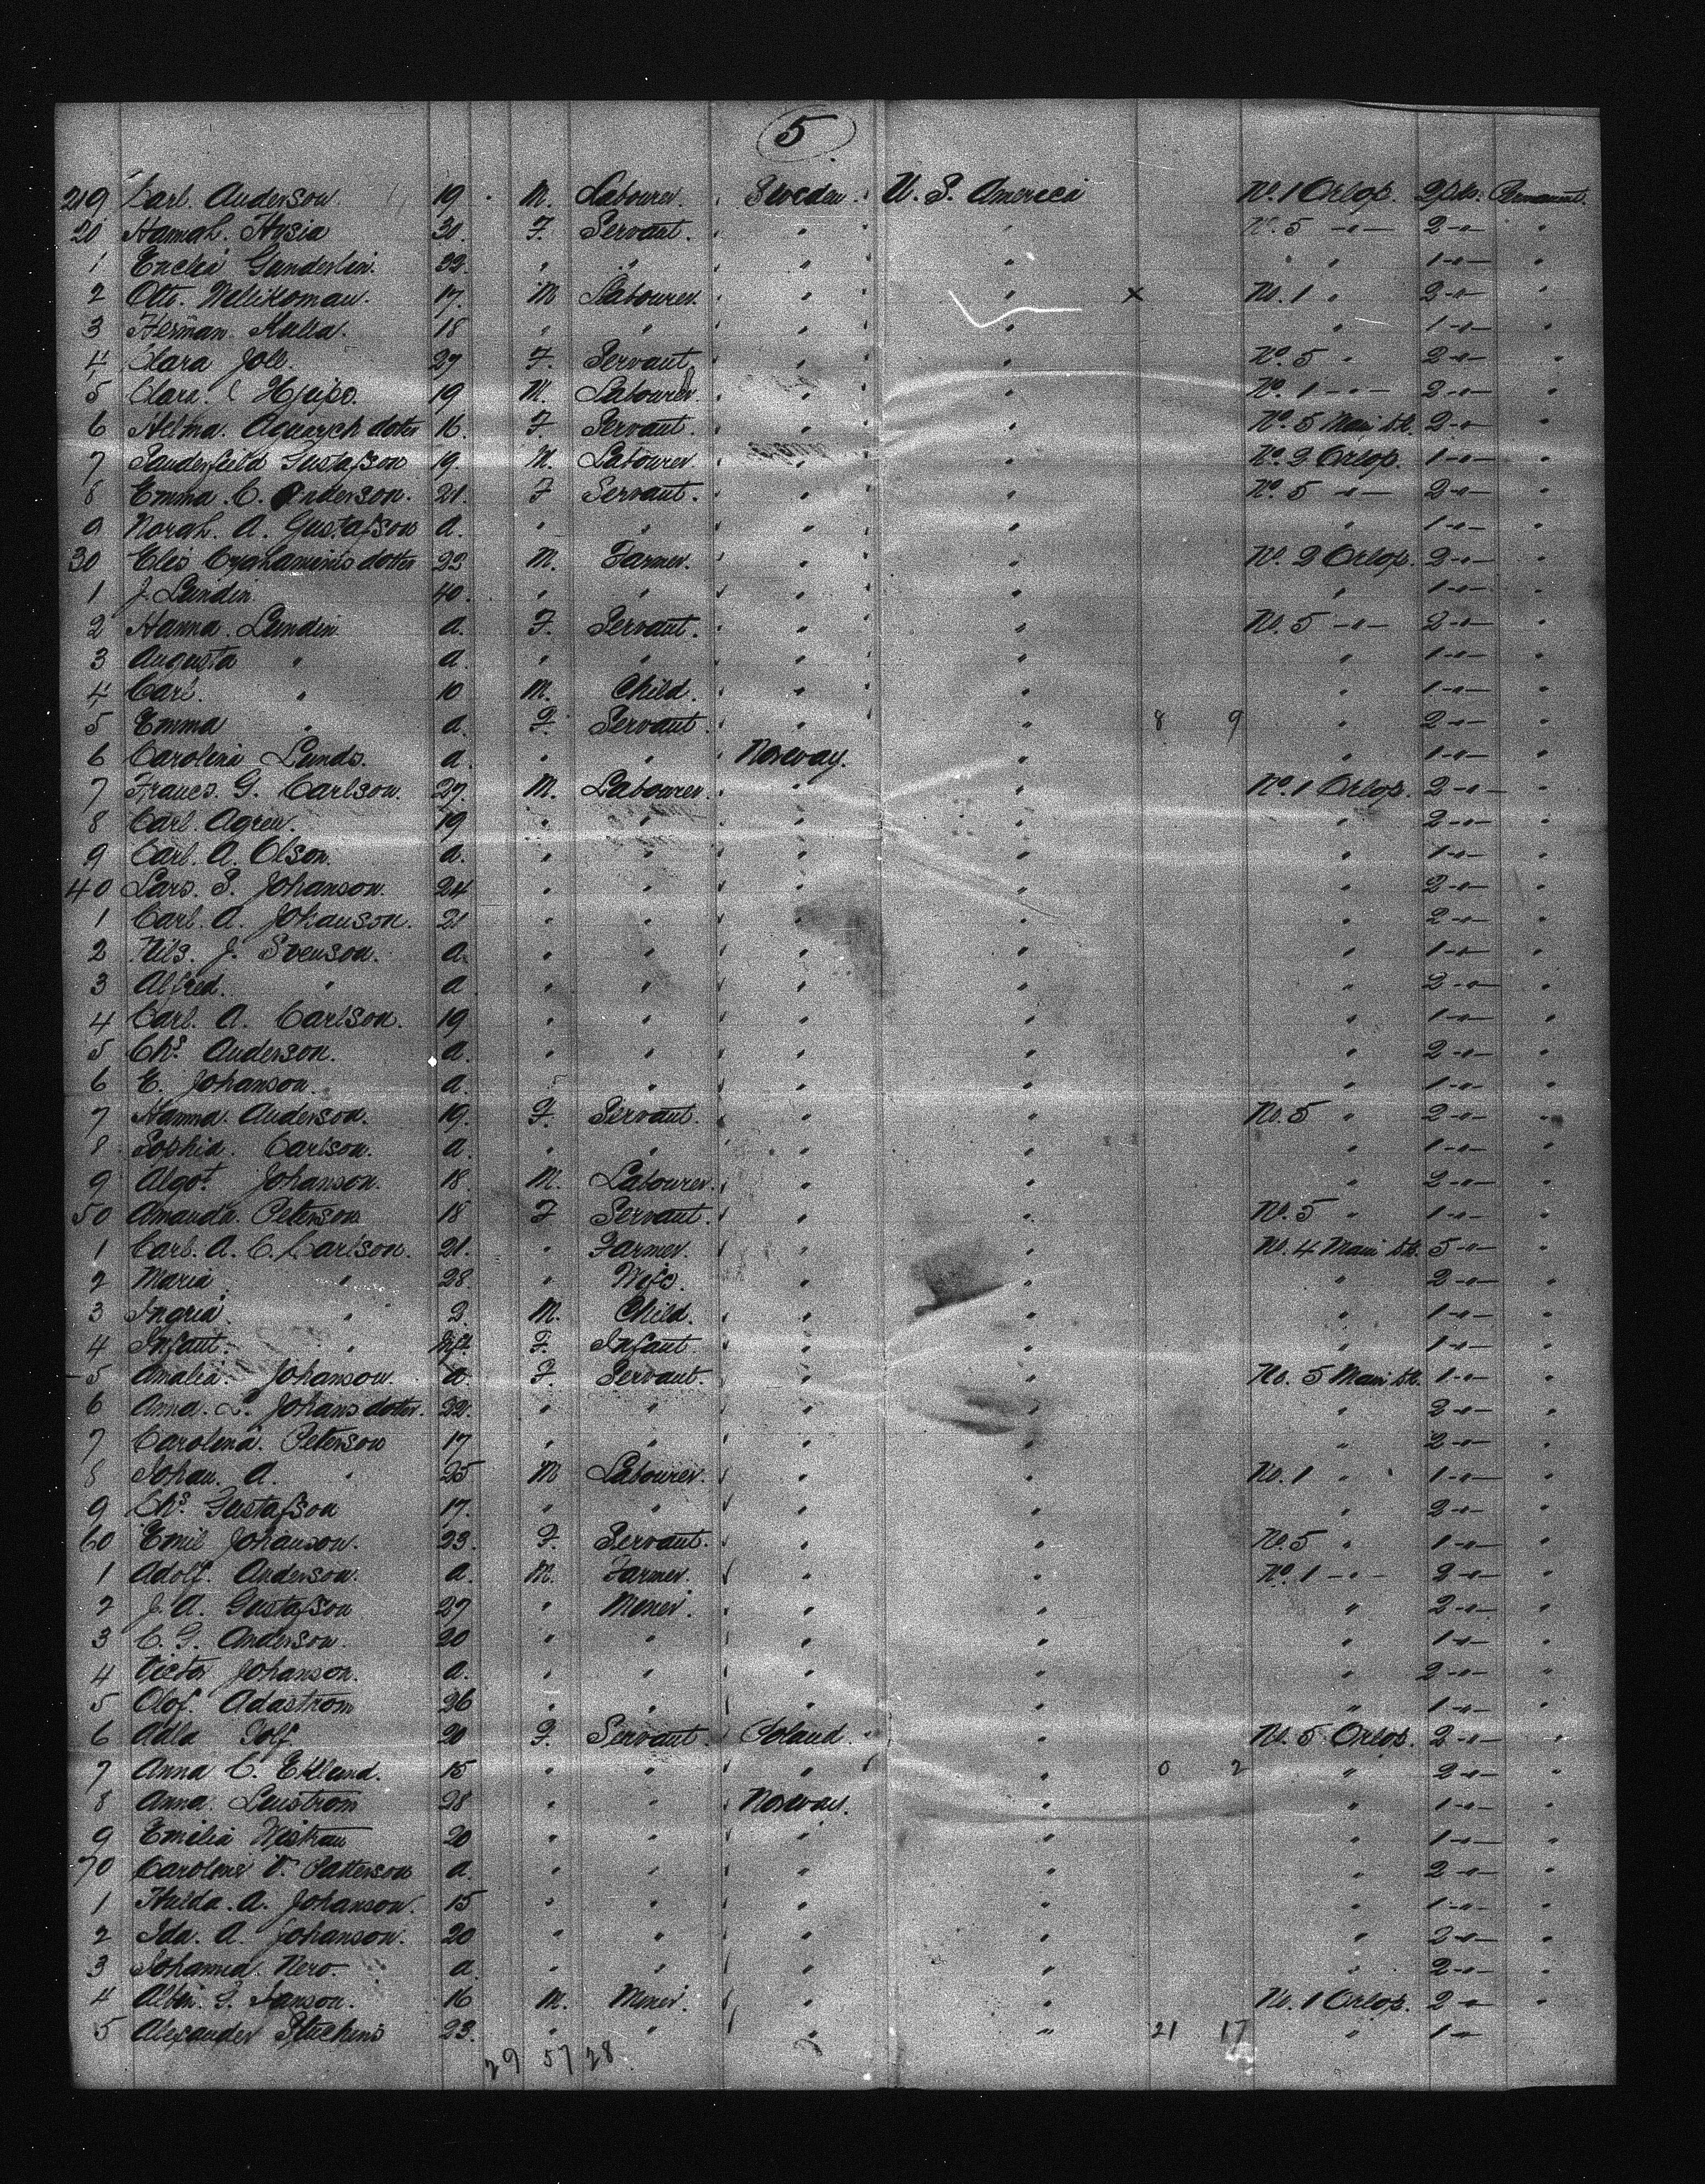 5
219 Carl Anderson 19 M. Labourer Sweden U. S. America No. 1 Orlop. 2 pks. Permanent
20 Hannah. Hysia 30. F. Servant. " " No. 5 -"- 2 -"- "
1 Gunderlin. 32. " " " " " 1 -"- "
2 Otto. 17. M Labourer " " × No. 1 " 2 -"- "
3 Herman. 18 " " " " " 1 -"- "
4 Clara 27 F. Servant " " No. 5 " 2 -"- "
5 Clara. 19 M. Labourer " " No. 1 -"- 2 -"- "
6 Helma. dotter 16. F. Servant. " " No. 5 Main Dk. 2 -"- "
7 Gustafson 19. M. Labourer " " No. 2 Orlop. 1 -"- "
8 Emma. C. Anderson. 21. F Servant. " " No. 5 -"- 2 -"- "
9 Norah. A. Gustafson a. " " " " " 1 -"- "
30 dotter 22 M. Farmer. " " No. 2 Orlop. 2 -"- "
1 J. Lundin 40. " " " " " 1 -"- "
2 Hanna. Lundin a. F. Servant. " " No. 5 -"- 2 -"- "
3 Augusta " a. " " " " " 1 -"- "
4 Carl. " 10 M. Child. " " " 1 -"- "
5 Emma " a. F. Servant. " " 8 9 " 2 -"- "
6 Carolini Lunds. a. " " Norway. " " 1 -"- "
7 G. Carlson. 27. M. Labourer. " " No. 1 Orlop. 2 -"- "
8 Carl. Agren. 19 " " " " " 2 -"- "
9 Carl. A. Olson. a. " " " " " 1 -"- "
40 Lars. P. Johanson. 24 " " " " " 2 -"- "
1 Carl. A. Johanson. 21 " " " " " 2 -"- "
2 Nils. J. Svenson. a. " " " " " 1 -"- "
3 Alfred. " a. " " " " " 2 -"- "
4 Carl. A. Carlson. 19 " " " " " 1 -"- "
5 Chs. Anderson. a. " " " " " 2 -"- "
6 E. Johanson. a. " " " " 1 -"- "
7 Hanna. Anderson. 19. F. Servant. " " No. 5 " 2 -"- "
8 Sophia. Carlson. a. " " " " " 1 -"- "
9 Algot. Johanson. 18. M. Labourer. " " " 2 -"- "
50 Amanda. Peterson 18 F Servant. " " No. 5 " 1 -"- "
1 Carl. A. C. Carlson. 21. " Farmer. " " No. 4 Main Dk. 5 -"- "
2 Maria. " 28 " Wife. " " " 2 -"- "
3 Ingria. " 2. M. Child. " " " 1 -"- "
4 Infant. " Inft. F. Infant. " " " 1 -"- "
5 Amalia. Johanson a. F. Servant. " " No. 5 Main Dk. 1 -"- "
6 Anna. L. Johansdotter. 22. " " " " " 2 -"- "
7 Carolina. Peterson 17 " " " " " 2 -"- "
8 Johan. A. " 25 M Labourer. " " No. 1 " 1 -"- "
9 Chs. Gustafson 17. " " " " " 2 -"- "
60 Emil Johanson. 23. F. Servant. " " No. 5 " 1 -"- "
1 Adolf. Anderson. a. M. Farmer. " " No. 1 -"- 2 -"- "
2 J. A. Gustafson 27 " Miner. " " " 2 -"- "
3 C. G. Anderson. 20 " " " " " 1 -"- "
4 Victor Johanson. a. " " " " " 2 -"- "
5 Olof. Adastrom 26 " " " " " 1 -"- "
6 Adla 20 F. Servant. Poland. " No. 5 Orlop. 2 -"- "
7 Anna C. Eklund. 15 " " " " 0 2 " 2 -"- "
8 Anna. 28 " " Norway. " " 1 -"- "
9 Emelia 20 " " " " " 1 -"- "
70 Caroline V. Patterson a. " " " " " 2 -"- "
1 Hulda. A. Johanson. 15 " " " " " 1 -"- "
2 Ida. A. Johanson. 20 " " " " " 2 -"- "
3 Johanna. Nero. a. " " " " " 2 -"- "
4 Albin. S. Janson. 16 M. Miner. " " No. 1 Orlop. 2 -"- "
5 Alexander 23. " " " " 21 17 " 1 -"-
29 57 28